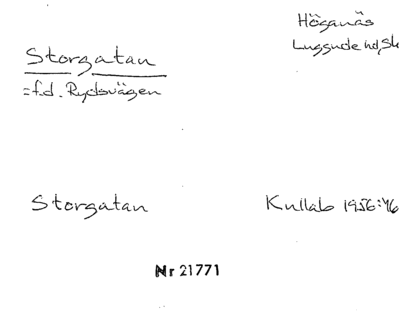 Höganäs
Luggude hd, Sk
Storgatan
= f.d. Rydsvägen
Storgatan
Kullab 1956:46
Nr 21771